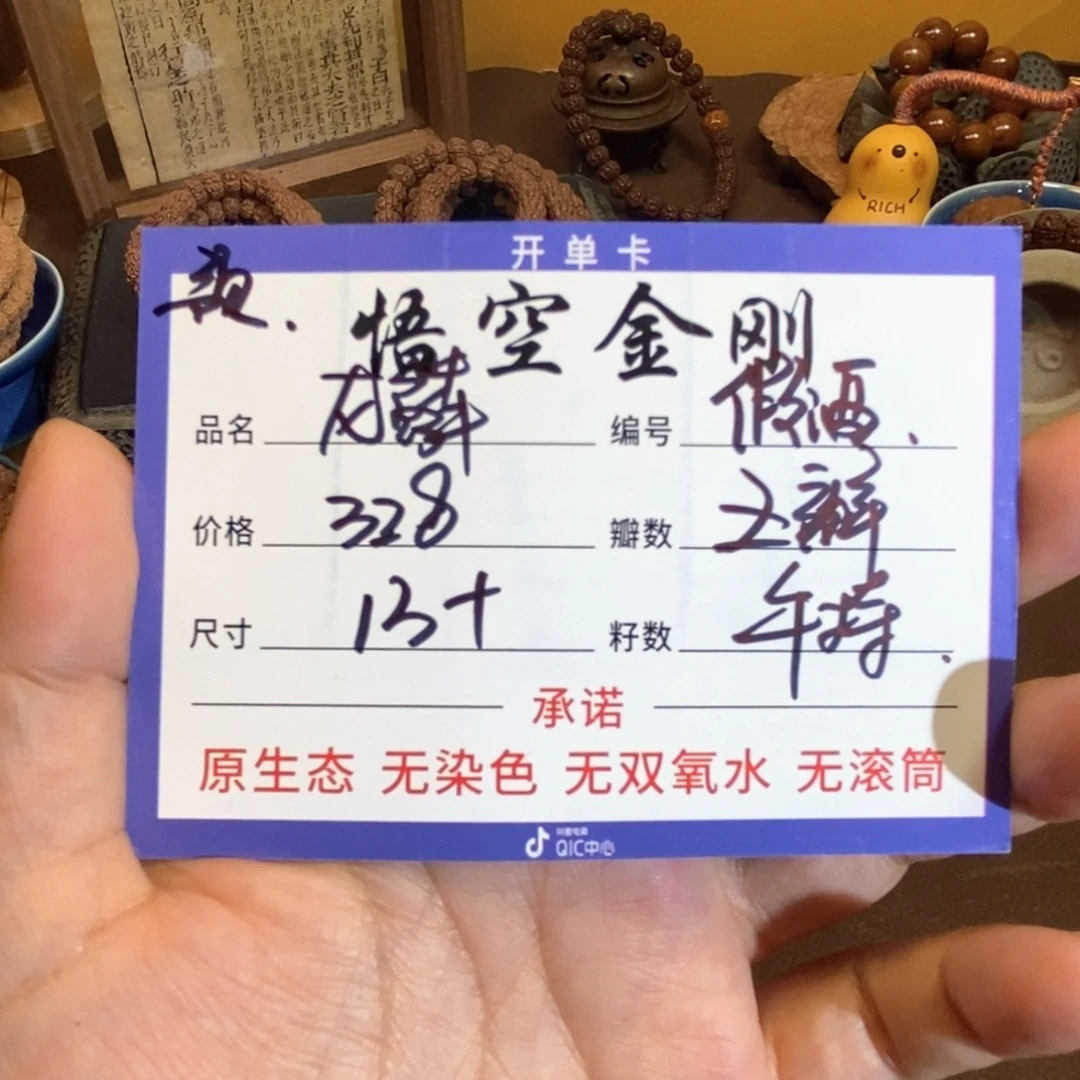 开单卡
悟空金刚
品名 龙鳞 编号 假洒、
价格 328 瓣数 五瓣
尺寸 13+ 籽数
承诺
原生态 无染色 无双氧水 无滚筒
抖音电商
QIC中心
RICH